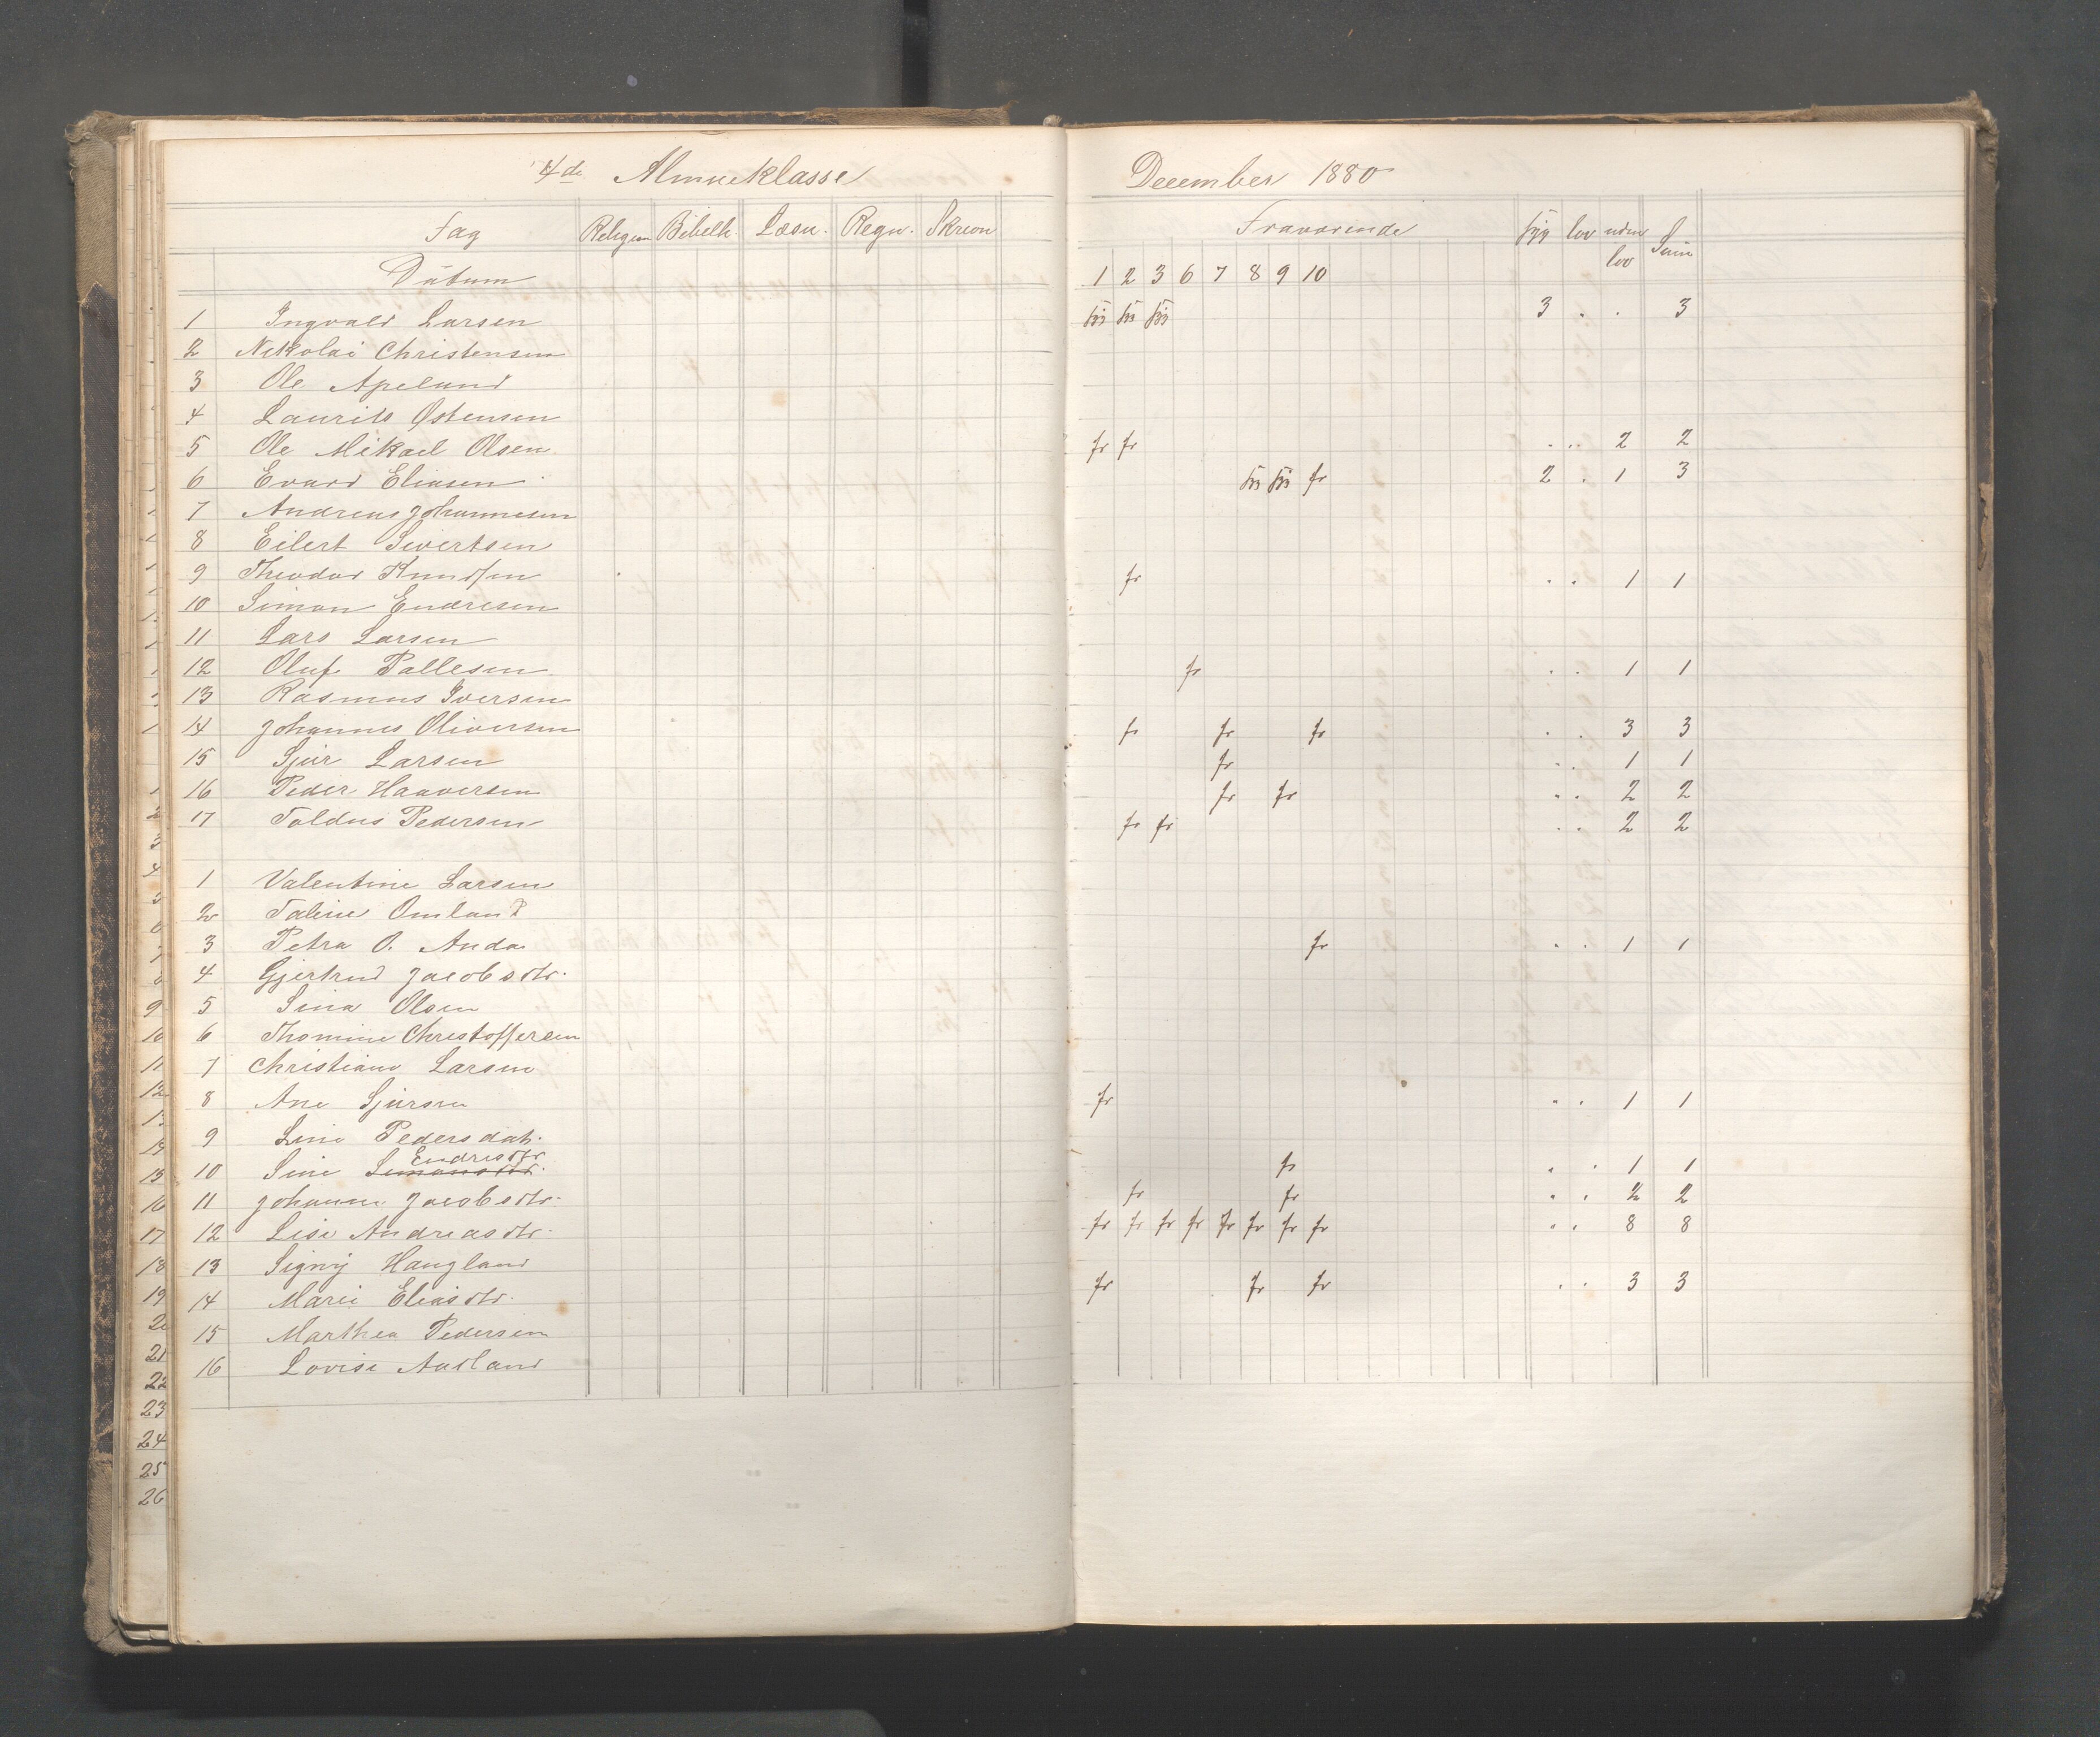 4de Almueklasse
Fag Religion Bibelh. Læsn. Regn. Skrivn
Datum
1 Ingvald Larsen
2 Nikolai Christensen
3 Ole Apeland
4 Laurits Østensen
5 Ole Mikael Olsen
6 Evard Eliasen
7 Andreas Johannesen
8 Eilert Sivertsen
9 Theodor Knudsen
10 Simon Endresen
11 Lars Larsen
12 Oluf Pallesen
13 Rasmus Iversen
14 Johannes Oliversen
15 Sjur Larsen
16 Peder Haaversen
17 Toldus Pedersen
1 Valentine Larsen
2 Taline Omland
3 Petra O. Anda
4 Gjertrud Jacobsdtr.
5 Sina Olsen
6 Thomine Christoffersen
7 Christiane Larsen
8 Ane Sjursen
9 Line Pedersdat.
10 Sine Simonsdtr. Endresdtr
11 Johanne Jacobsdtr.
12 Lise Andreasdtr.
13 Signy Haugland
14 Marie Eliasdtr.
15 Marthea Pedersen
16 Lovise Aarland
2
3
4
5
6
7
8
9
10
11
12
13
14
15
16
17
18
19
20
21
22
23
24
25
26
December 1880
Fraværende syg lov uden lov Sum
1 2 3 6 7 8 9 10
syg syg syg 3 . . 3
fr fr . . 2 2
syg syg fr 2 . 1 3
fr . . 1 1
fr . . 1 1
fr fr fr . . 3 3
fr . . 1 1
fr fr . . 2 2
fr fr . . 2 2
fr . . 1 1
fr . . 1 1
fr . . 1 1
fr fr . . 2 2
fr fr fr fr fr fr fr fr . . 8 8
fr fr fr . . 3 3